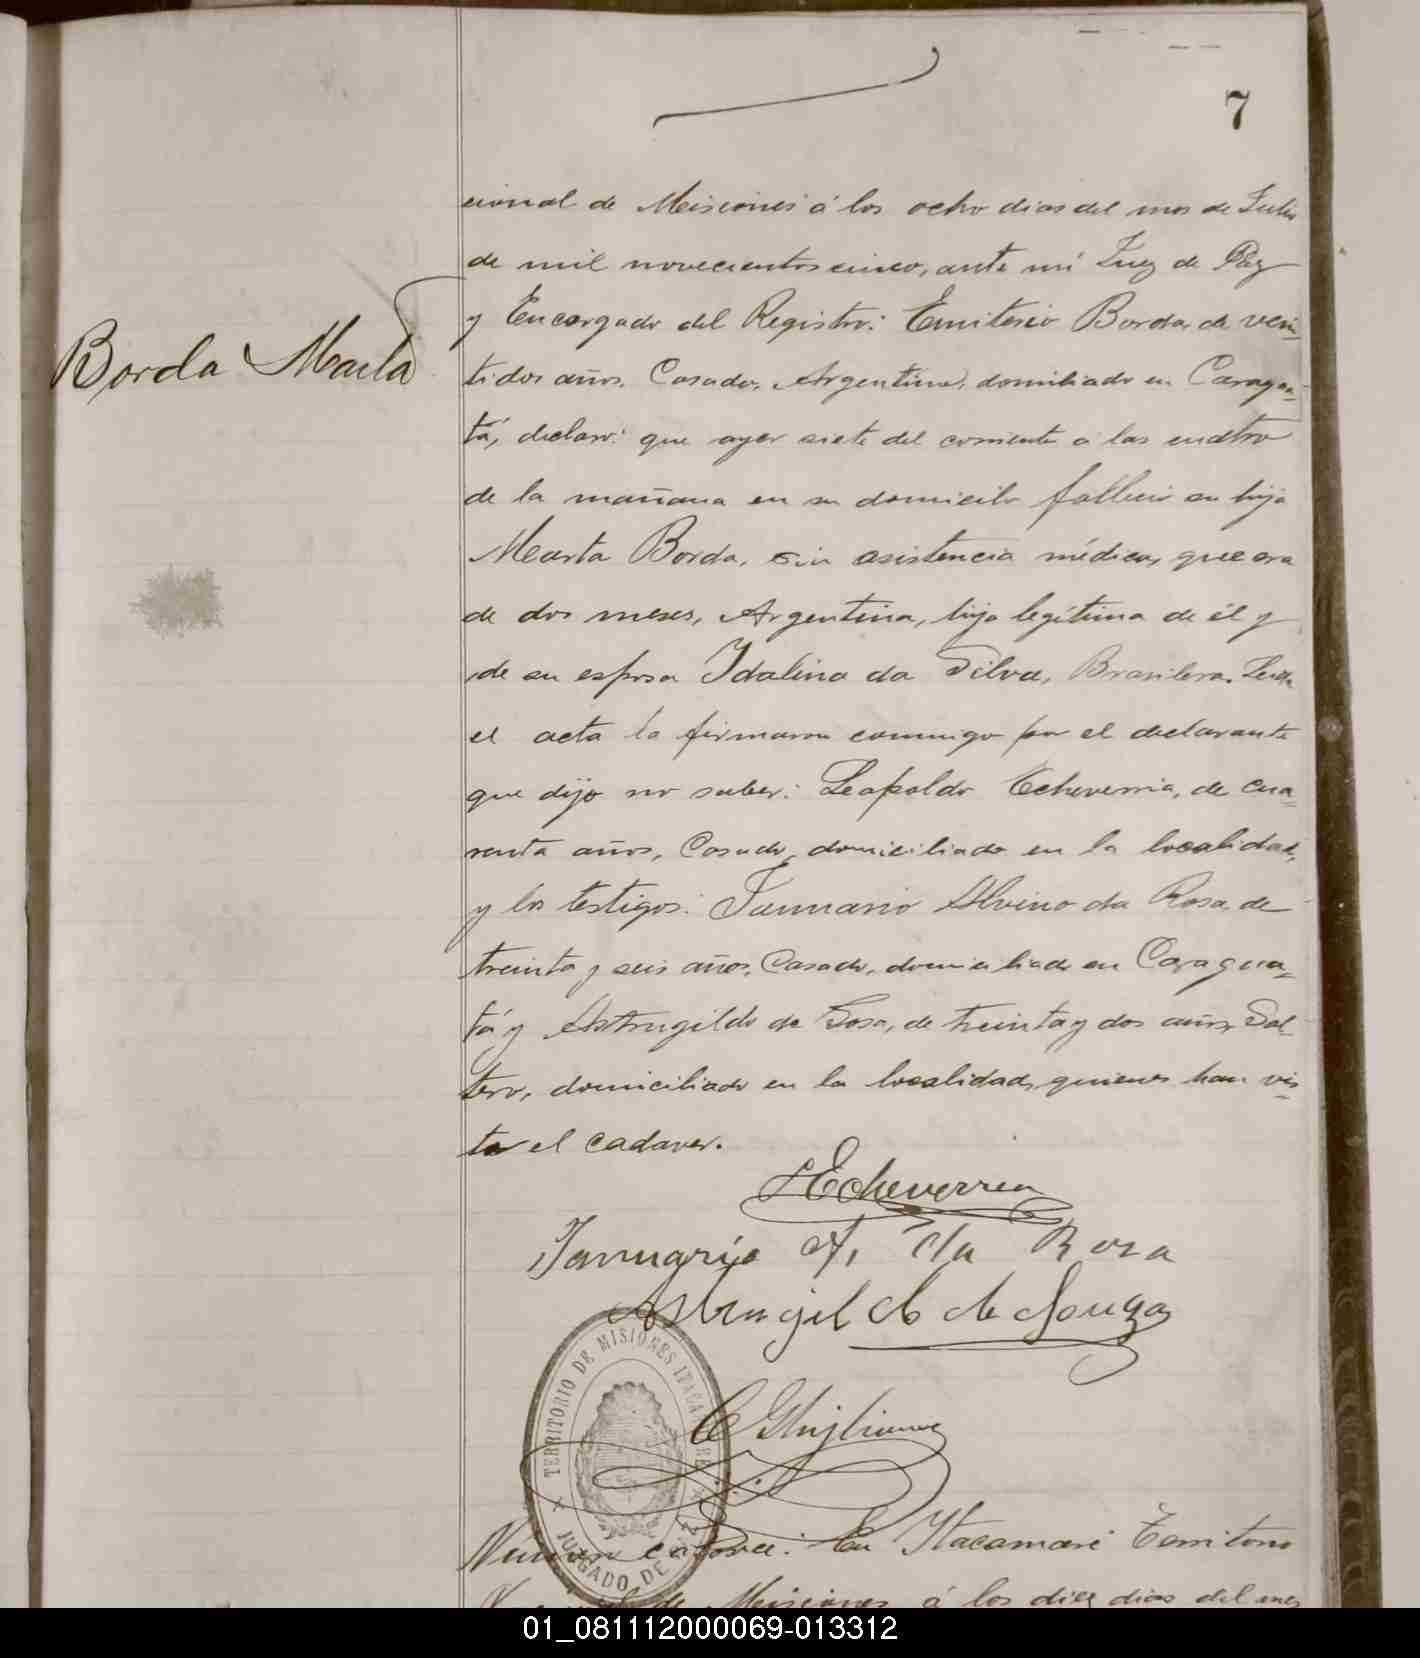 7
cional de Misiones á los ocho dias del mes de Julio
de mil novecientos cinco, ante mi Juez de Paz
y Encargado del Registro: Emiterio Borda, de vein-
Borda Marta
tidos años, Casado, Argentino, domiliado en Caragua-
tá, declaró: que ayer siete del corriente á las cuatro
de la mañana en su domicilo falleció su hija
Marta Borda, sin asistencia médica, que era
de dos meses, Argentina, hija legítima de él y
de su esposa Idalina da Silva, Brasilera. Leida
el acta la firmaron conmigo por el declarante
que dijo no saber: Leopoldo Echeverria, de cua-
renta años, Casado, domiciliado en la localidad,
y los testigos: Januario Alvino da Rosa, de
treinta y seis años, Casado, domiciliado en Caragua-
tá y Astrugildo de Sosa, de treinta y dos años, Sol-
tero, domiciliado en la localidad, quienes han vis-
to el cadaver.
LEcheverria
Januario A. da Rosa
Astrugildo de Souza
TERRITORIO DE MISIONES ITACARUARE
JUZGADO DE PAZ
C Ghigliano
Número catorce: En Itacaruaré Territorio
Nacional de Misiones á los diez dias del mes
01_081112000069-013312